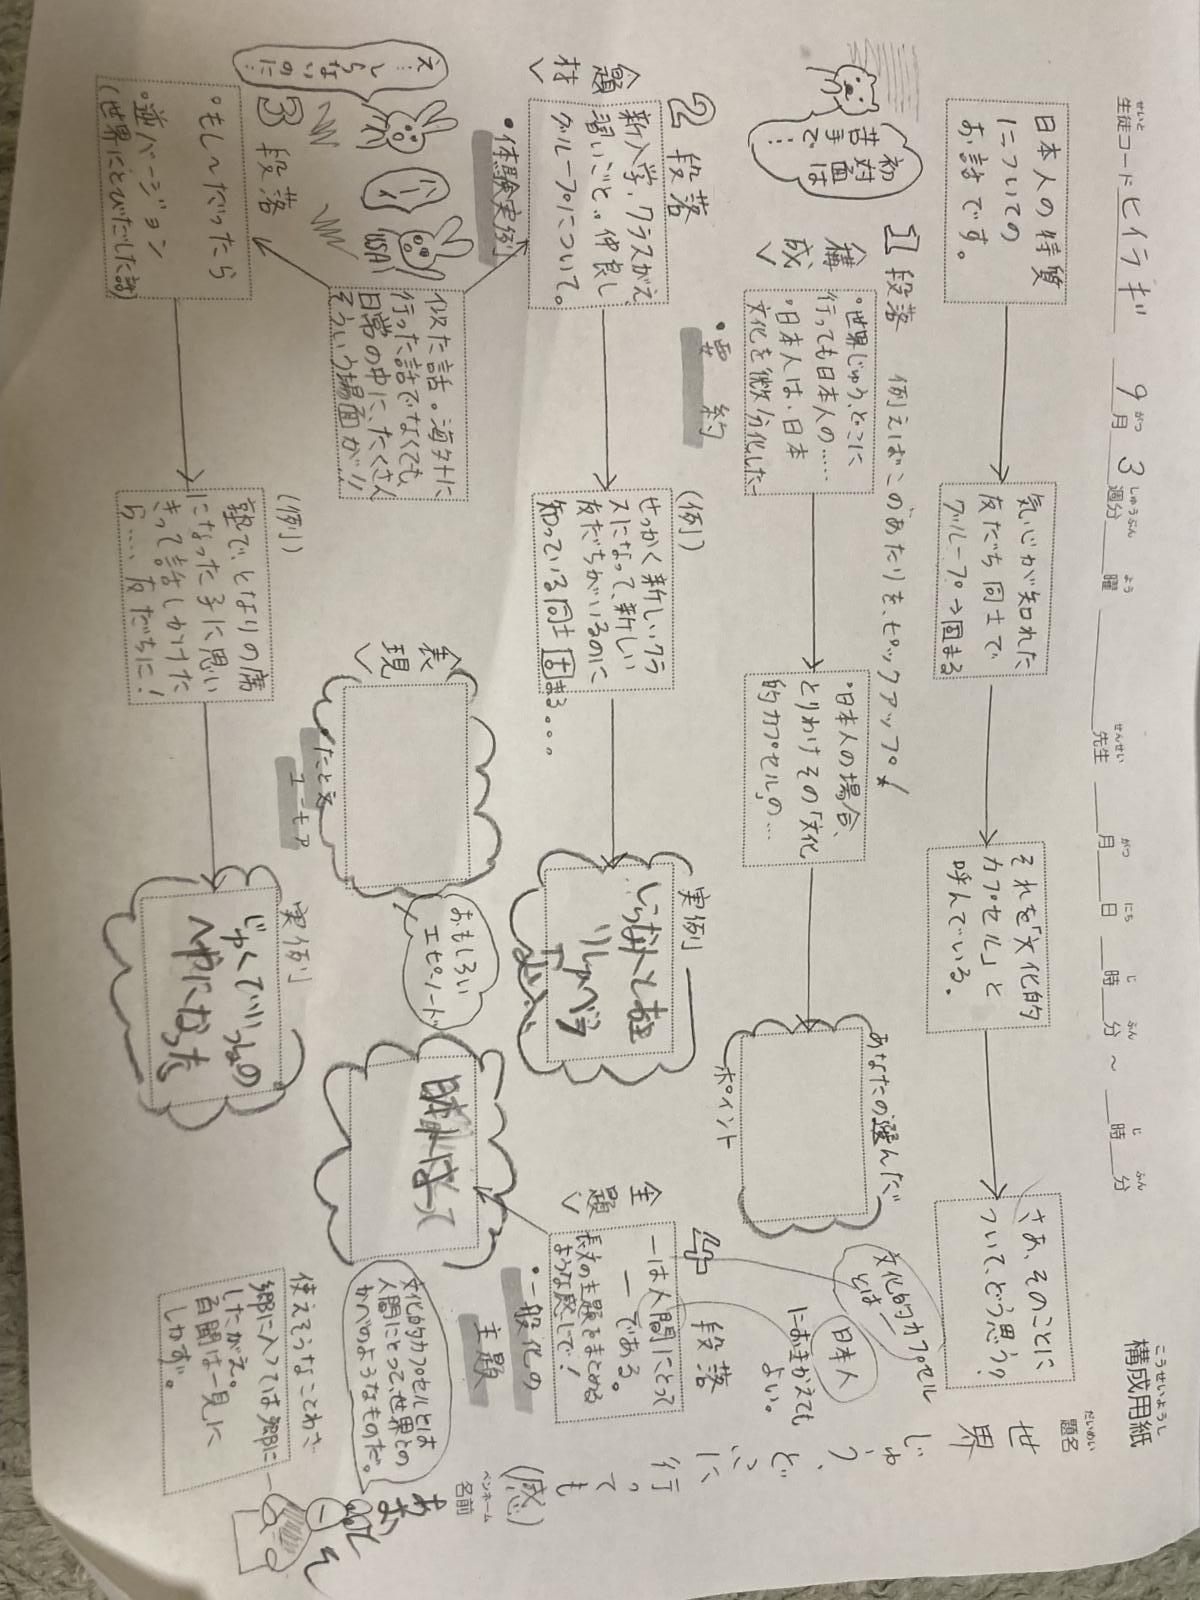 構成用紙
こうせいようし
生徒コード ヒイラギ 9月 3週分 曜 先生 月 日 時 分 ～ 時 分
せいと
がつ
しゅうぶん
よう
せんせい
がつ
にち
じ
ふん
じ
ふん
題名
だいめい
世界じゅう、どこに行っても
(感)
ペンネーム
名前
日本人の特質
についての
お話です。
気心が知れた
友だち同士で
グループ→固まる
それを「文化的
カプセル」と
呼んでいる。
さあ、そのことに
ついて、どう思う!?
1段落 例えばこのあたりを、ピックアップ!
初対面は
苦手で…
構成
・世界じゅう、どこに
行っても日本人の……
・日本人は、日本
文化を微分化した…
・日本人の場合、
とりわけその「文化
的カプセル」の…
あなたの選んだ
ポイント
文化的カプセル
とは
日本人
におきかえても
よい。
・要約
2段落
題材
新入学、クラスがえ、
習いごと。仲良し
グループについて。
(例)
せっかく新しいクラ
スになって、新しい
友だちがいるのに
知っている同士固まる。。。
実例
4段落
主題
ーは人間にとって
ーである。
長文の主題をまとめる
ような感じで!
・一般化の
主題
・体験実例
似た話。海外に
行った話でなくても、
日常の中に、たくさん
そういう場面が!!
表現
たとえ
ユーモア
おもしろい
エピソード
日本人にとって
文化的カプセルとは
人間にとって、世界との
かべのようなものだ。
え…
しら
ない
のに
ハーイ
USA!
3段落
・もし〜だったら
・逆バージョン
(世界にとびだした話)
(例)
塾で、となりの席
になった子に思い
きって話しかけた
ら…、友だちに!
実例
使えそうなことわざ
郷に入っては郷に
したがえ。
百聞は一見に
しかず。